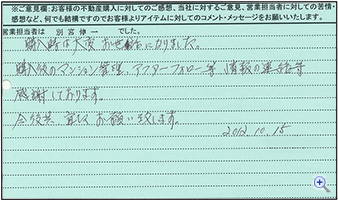 ※ご意見欄:お客様の不動産購入に対してのご感想、当社に対するご意見、営業担当者に対しての苦情・
感想など、何でも結構ですのでお客様よりアイテムに対してのコメント・メッセージをお願いいたします。
営業担当者は 別宮修一 でした。
購入時は大変お世話になりました。
購入後のマンション管理、アフターフォロー等、情報の
感謝しております。
今後共、宜しくお願い致します。
2012.10.15